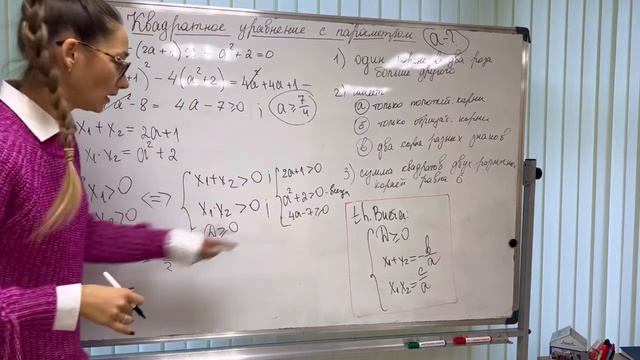 Квадратное уравнение с параметром. a-?
(2a+1) a²+2=0
)² - 4(a²+2) = 4a²+4a+1-
a²-8 = 4a-7≥0 ; a≥7/4
x₁+x₂=2a+1
x₁·x₂=a²+2
x₁>0 <=> { x₁+x₂>0 ; { 2a+1>0
x₂>0 x₁·x₂>0 ; a²+2>0-
D≥0 4a-7≥0
2
1) один в два раза
больше другого
2) имеет
а только полож. корни
б только отрицат. корни
в два корня разных знаков
3) сумма квадратов двух
корней равна 6
th. Виета:
{ D≥0
x₁+x₂=-b/a
x₁x₂=c/a